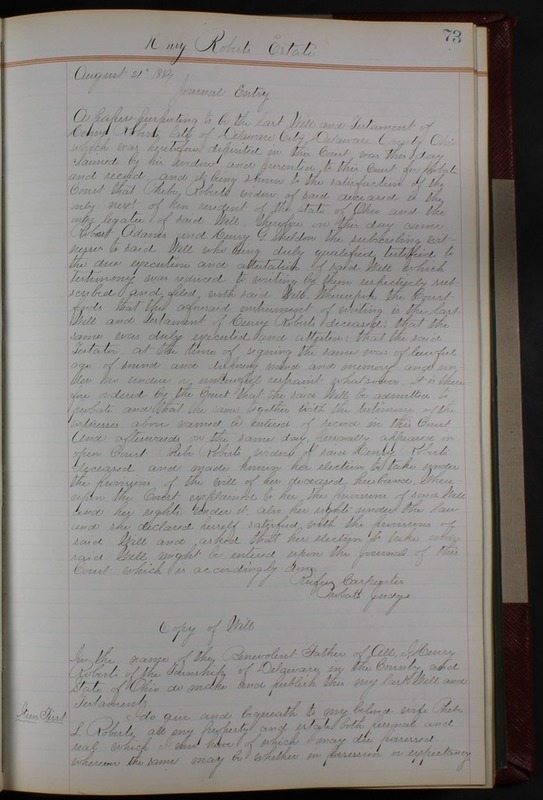 73
Henry Roberts Estate
August 21st 1883
Journal Entry
A paper purporting to be the last Will and Testament of
Henry Roberts late of Delaware City, Delaware County Ohio
which was heretofore deposited in this Court, was this day
claimed by his widow and presented to this Court for probate
and record, and it being shown to the satisfaction of the
Court that Phebe Roberts widow of said deceased is the
only next of kin resident of the State of Ohio and the
only legatee of said Will. Therefore on this day came
Robert Adams and Henry G. Sheldon the subscribing wit-
nesses to said Will who being duly qualified, testified to
the due execution and attestation of said Will which
testimony was reduced to writing by them respectively sub-
scribed and filed with said Will. Whereupon the Court
finds that the aforesaid instrument of writing is the last
Will and Testament of Henry Roberts deceased; that the
same was duly executed and attested; that the said
Testator, at the time of signing the same was of lawful
age of sound and disposing mind and memory and un-
der no undue or unlawful restraint whatsoever. It is there-
fore ordered by the Court that the said Will be admitted to
probate and that the same together with the testimony of the
witnesses above named be entered of record in this Court
And afterwards on the same day, personally appeared in
open Court Phebe Roberts widow of said Henry Roberts
deceased and made known her election to take under
the provisions of the will of her deceased husband. Where-
upon the Court explained to her, the provisions of said Will
and her rights under it, also her rights under the law
and she declared herself satisfied with the provisions of
said Will and asked that her election to take under
said Will might be entered upon the Journal of this
Court which is accordingly done
Rufus Carpenter
Probate Judge
Copy of Will
In the name of the Benevolent Father of All, I Henry
Roberts of the Township of Delaware, in the County and
State of Ohio do make and publish this my last Will and
Testament
Item First
I do give and bequeath to my beloved wife Phebe
L Roberts, all my property and estate both personal and
real which I now have of which I may die possessed
wherever the same may be whether in possession or expectancy